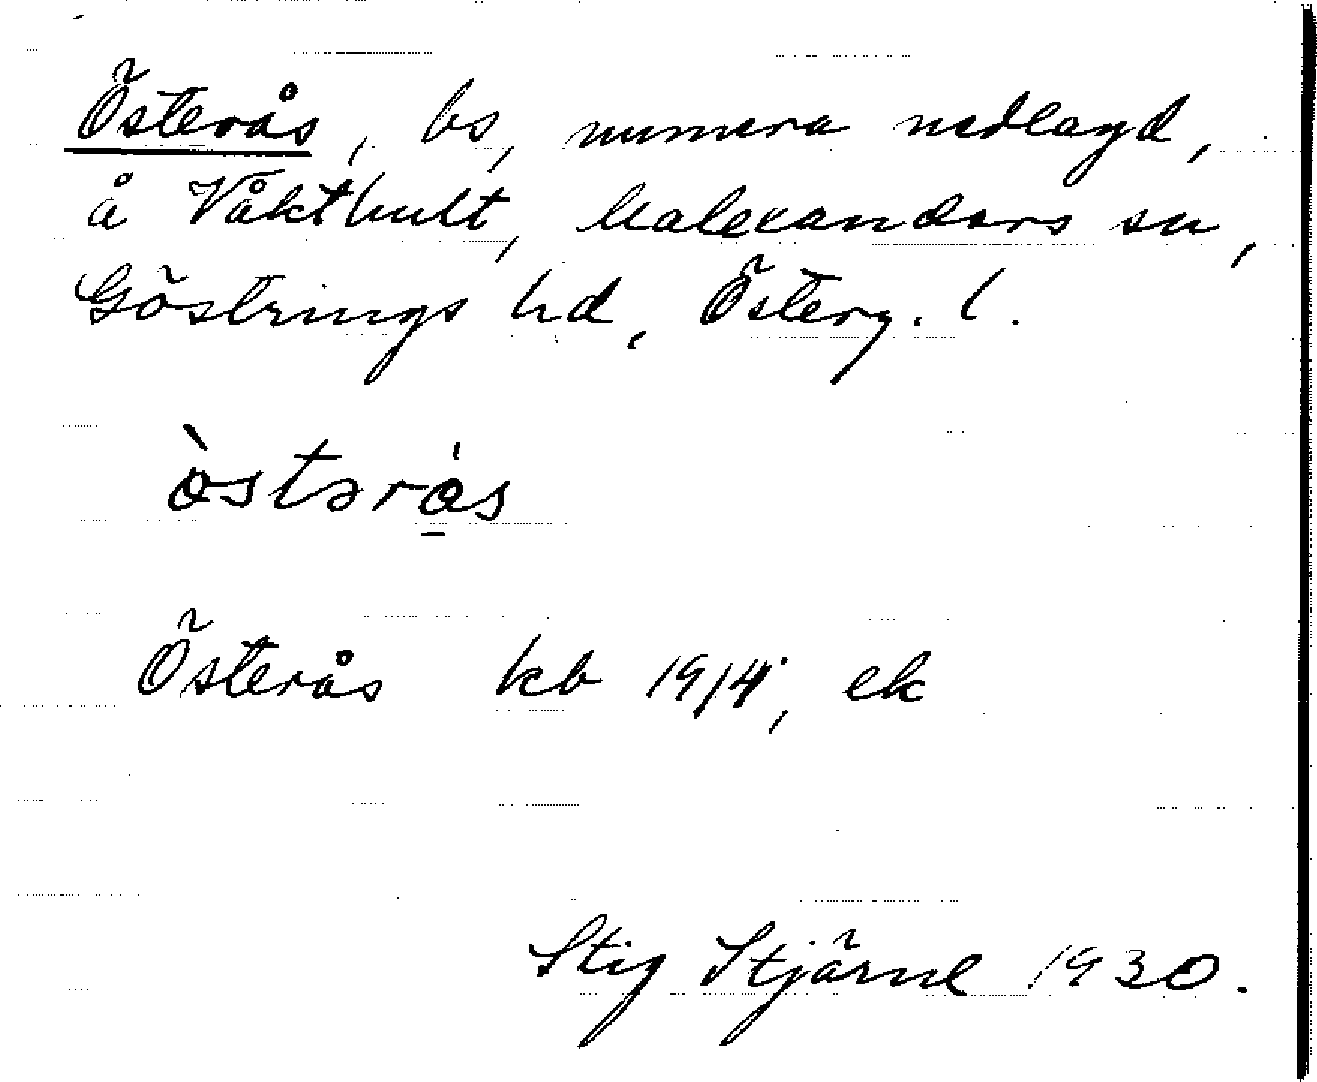 Österås, bs, numera nedlagd,
å Våkthult, Malexanders sn,
Göstrings hd, Österg. l.
òstərå̱s
Österås kb 1914, ek
Stig Stjärne 1930.